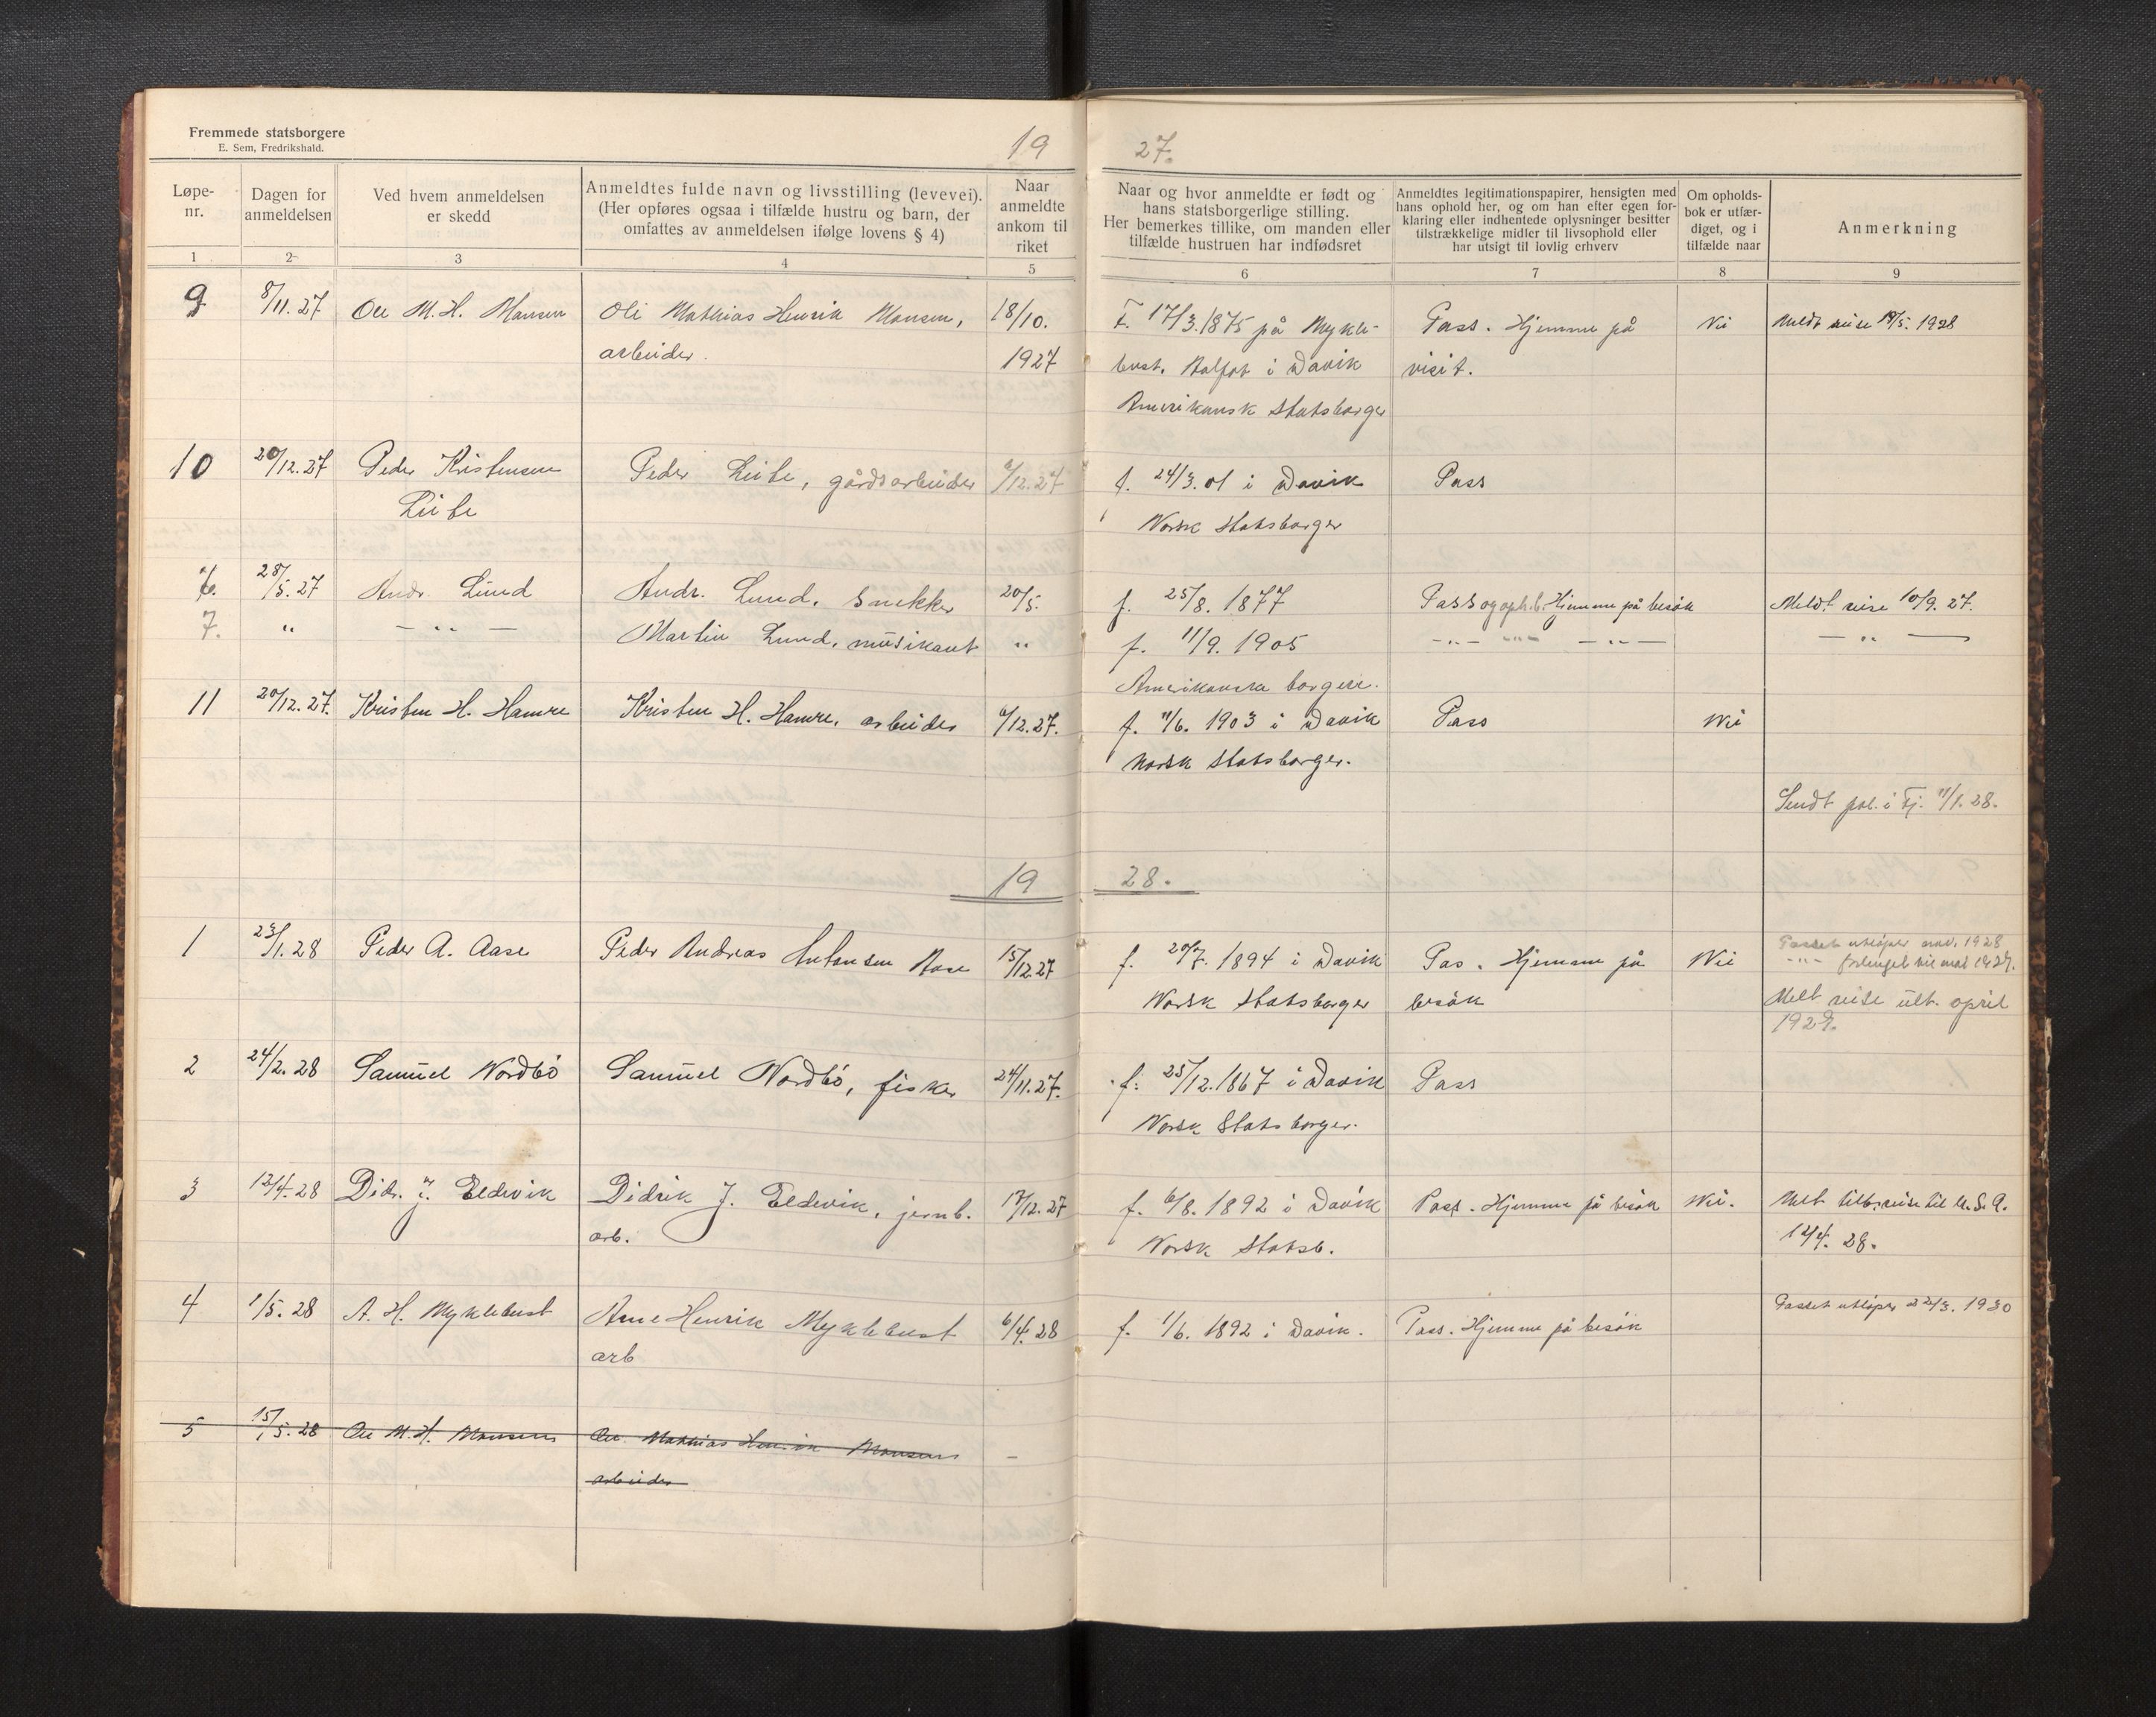 Fremmede statsborgere
E. Sem, Fredrikshald.
19 27.
Løpe-
nr.
Dagen for
anmeldelsen
Ved hvem anmeldelsen
er skedd
Anmeldtes fulde navn og livsstilling (levevei).
(Her opføres ogsaa i tilfælde hustru og barn, der
omfattes av anmeldelsen ifølge lovens § 4)
Naar
anmeldte
ankom til
riket
Naar og hvor anmeldte er født og
hans statsborgerlige stilling.
Her bemerkes tillike, om manden eller
tilfælde hustruen har indfødsret
Anmeldtes legitimationspapirer, hensigten med
hans ophold her, og om han efter egen for-
klaring eller indhentede oplysninger besitter
tilstrækkelige midler til livsophold eller
har utsigt til lovlig erhverv
Om opholds-
bok er utfær-
diget, og i
tilfælde naar
Anmerkning
1 2 3 4 5 6 7 8 9
9 8/11.27 Ole M. H. Monsen Oli Mathias Henrik Monsen, 18/10. F. 17/3.1875 på Mykle- Pass. Hjemme på Nei Meldt reise 15/5. 1928
arbeider. 1927 bust, Aalfot i Davik visit.
Amerikansk Statsborger
10 20/12.27 Peder Kristensen Peder Leite, gårdsarbeider 6/12.27 f. 24/3.01 i Davik Pass
Leite Norsk Statsborger
6. 28/5.27 Andr. Lund Andr. Lund, snekker 20/5. f. 25/8. 1877 Pass og oph.b. Hjemme på besök Meldt reise 10/9. 27.
7. " — " — Martin Lund, musikant " f. 11/9. 1905 —"— —"— —"— — " —
Amerikanske borgere.
11 20/12.27. Kristen H. Hamre Kristen H. Hamre, arbeider 6/12.27. f. 11/6. 1903 i Davik Pass Nei
Norsk Statsborger.
Sendt pol. i Fj. 11/1. 28.
19 28.
1 23/1.28 Peder A. Aase Peder Andreas Antonsen Aase 15/12.27 f. 20/7. 1894 i Davik Pas. Hjemme på Nei Passet utlöper nov. 1928
—"— forlenget til mai 1929.
Norsk Statsborger besök Melt reise ult. april
1929.
2 24/2.28 Samuel Nordbö Samuel Nordbö, fisker 24/11.27. f. 25/12.1867 i Davik Pass
Norsk Statsborger.
3 12/4.28 Didr. J. Eldevik Didrik J. Eldevik, jernb. 17/12.27 f. 6/8. 1892 i Davik Pass. Hjemme på besök Nei. Melt tilb.reise til U.S.A.
arb. Norsk Statsb. 12/4. 28.
4 1/5.28 A. H. Myklebust Arne Henrik Myklebust 6/4.28 f. 1/6. 1892 i Davik. Pass. Hjemme på besök Passet utlöper 22/3. 1930
arb
5 15/5.28 Ole M. H. Monsen Ole Mathias Henrik Monsen —
arbeider